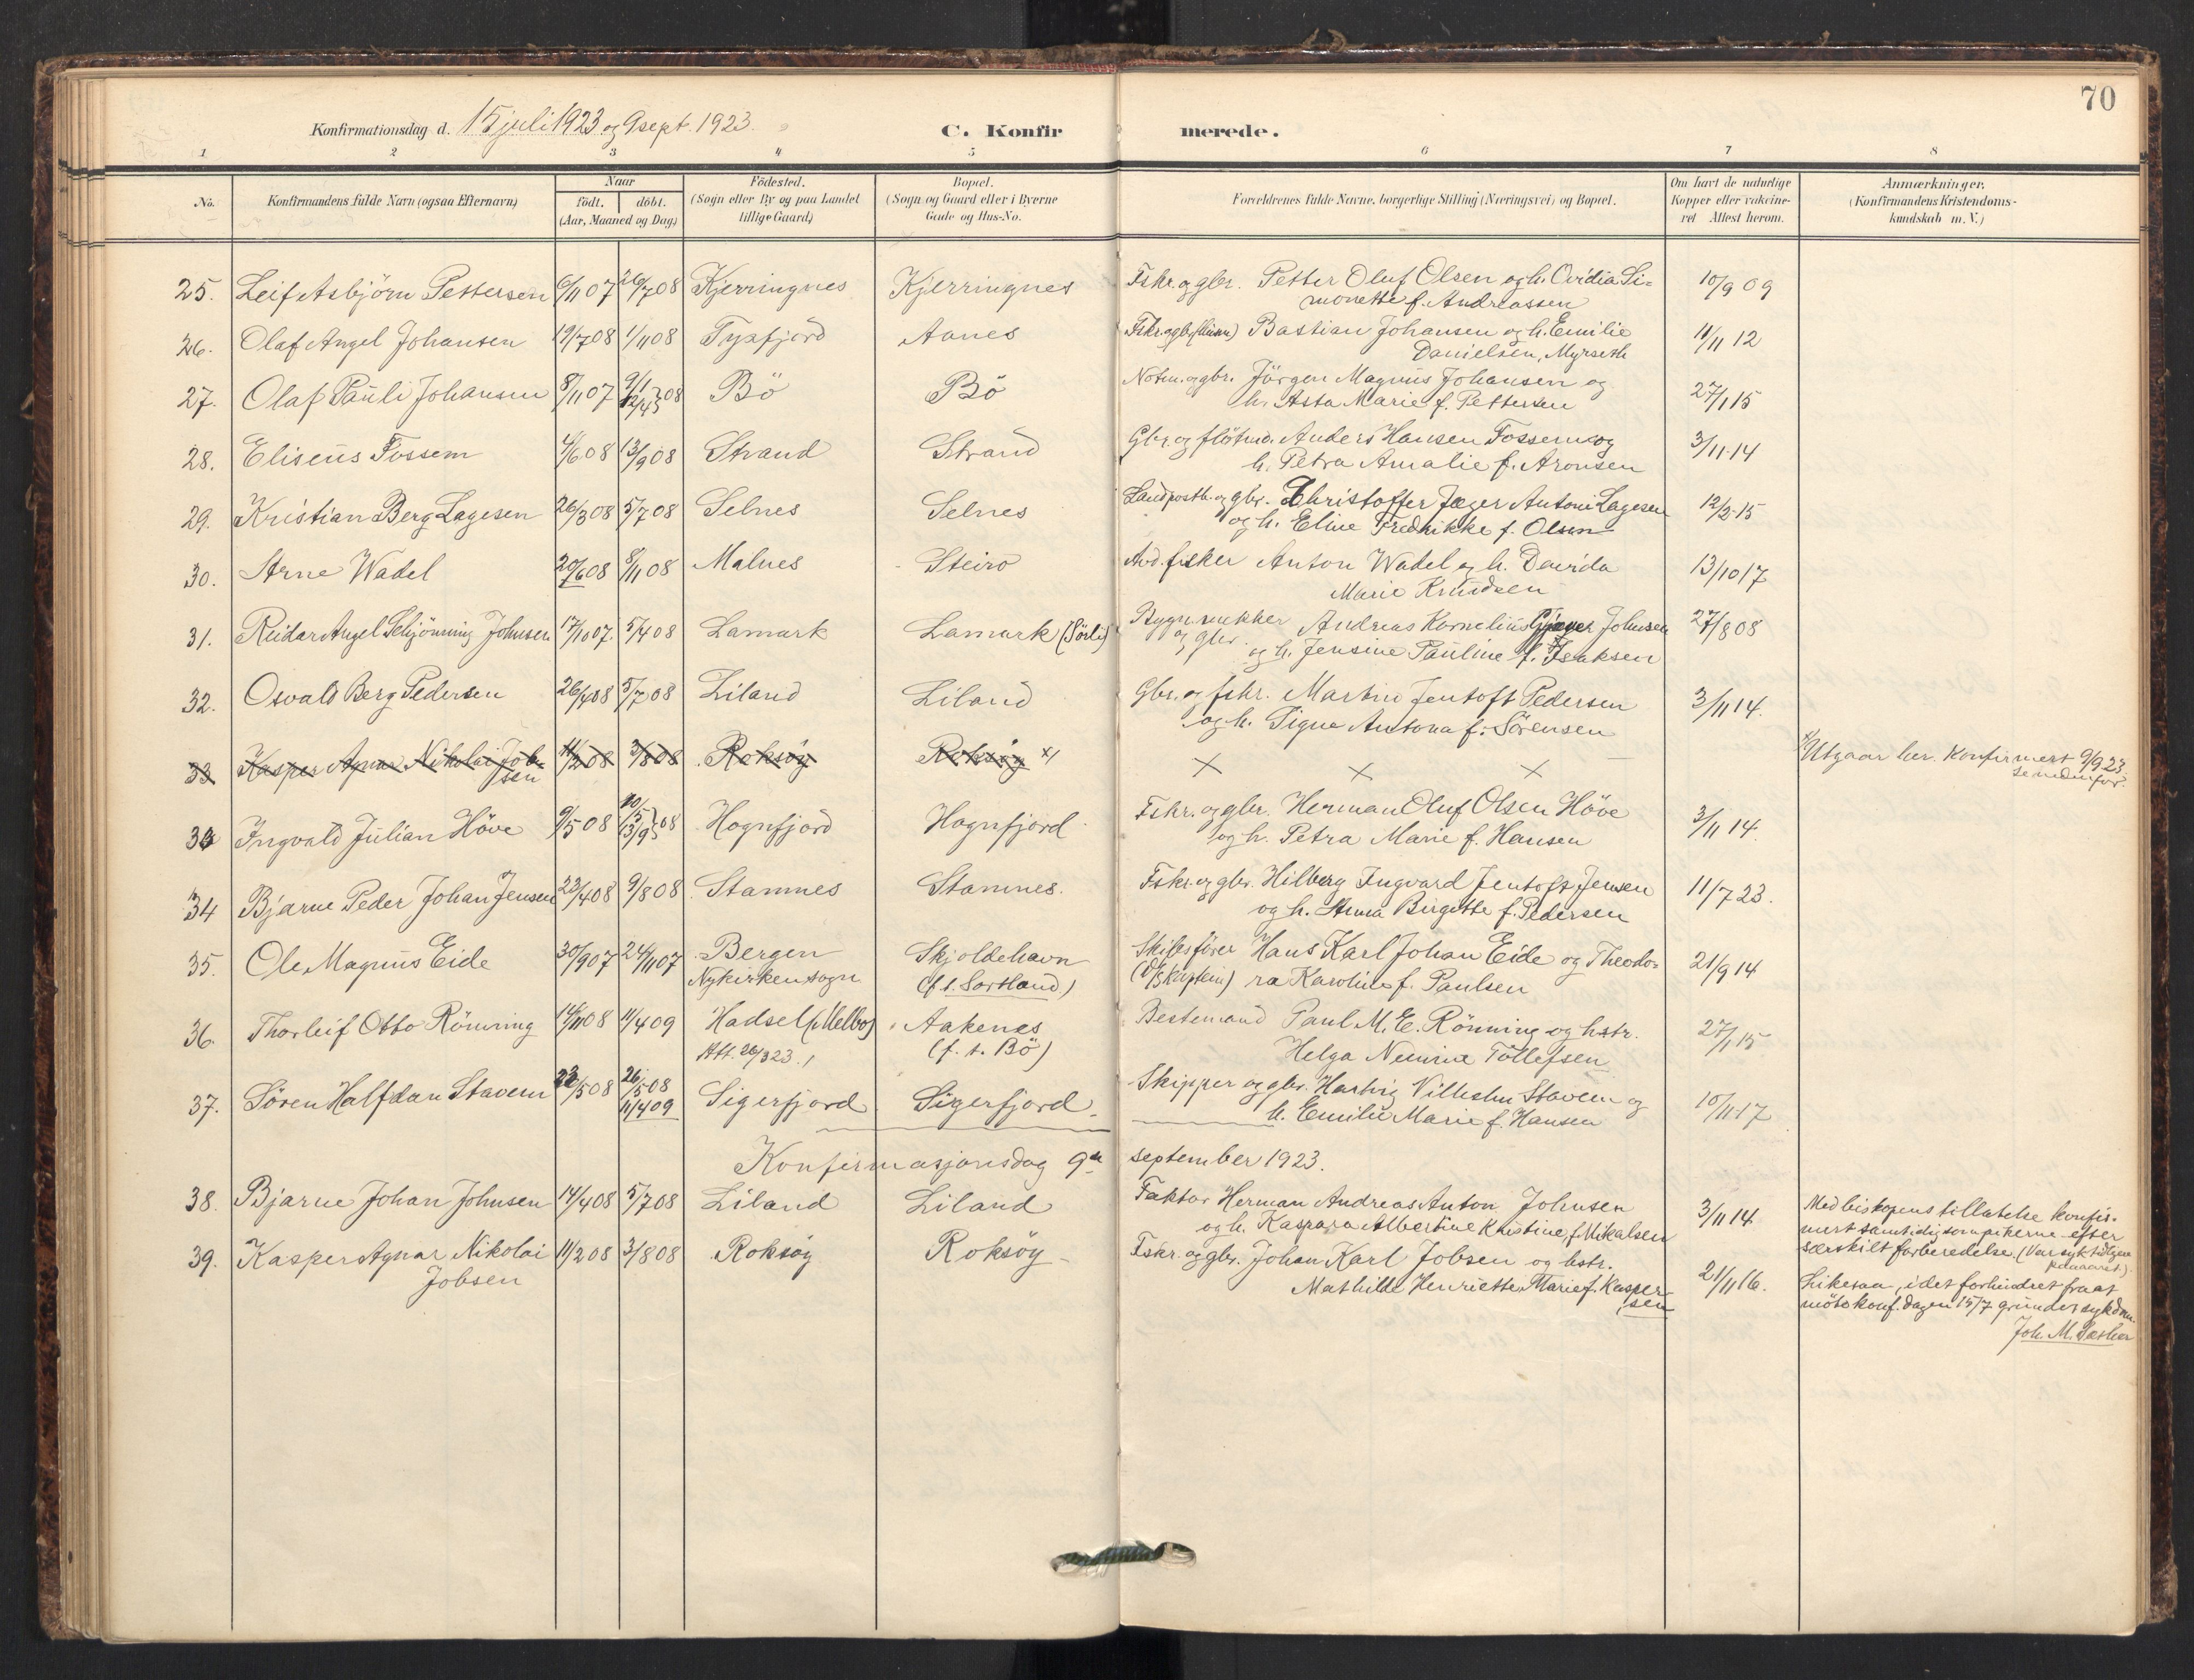 70
Konfirmationsdag d. 15 juli 1923 og 9 sept. 1923.
C. Konfir merede.
1 2 3 4 5 6 7 8
No.
Konfirmandens fulde Navn (ogsaa Efternavn)
Naar
födt. döbt.
(Aar, Maaned og Dag)
Födested.
(Sogn eller By og paa Landet
tillige Gaard)
Bopæl.
(Sogn og Gaard eller i Byerne
Gade og Hus-No.
Forældrenes fulde Navne, borgerlige Stilling (Næringsvei) og Bopæl.
Om havt de naturlige
Kopper eller vakcine-
ret Attest herom.
Anmærkninger.
(Konfirmandens Kristendoms-
kundskab m. V.)
25. Leif Asbjörn Pettersen 6/11 07 26/7 08 Kjerringnes Kjerringnes Fskr. og gbr. Petter Oluf Olsen og h. Ovidia Si=
monette f. Andreassen 10/9 09
26. Olaf Angel Johansen 19/7 08 1/11 08 Tysfjord Aanes Bastian Johansen og h. Emilie
Danielsen, Myrseth 11/11 12
27. Olaf Pauli Johansen 8/11 07 9/1 12/4 } 08 Bö Bö Notm. og gbr. Jörgen Magnus Johansen og
h. Asta Marie f. Pettersen 27/1 15
28. Eliseus Fossem 4/6 08 13/9 08 Strand Strand Gbr. og flötm. Anders Hansen Fossem og
h. Petra Amalie f. Aronsen 3/11 14
29. Kristian Berg Lagesen 26/3 08 5/7 08 Selnes Selnes Landpostb. og gbr. Christoffer Jæger Antoni Lagesen
og h. Eline Fredrikke f. Olsen 12/2 15
30. Arne Wadel 20/6 08 8/11 08 Malnes Steiro Avd. fisker Anton Wadel og h. Davida
Marie Knudsen 13/10 17
31. Reidar Angel Schjönning Johnsen 17/10 07. 5/4 08 Lamark Lamark (Sörli) Bygn. snekker Andreas Kornelius Gjæver Johnsen
og gbr. og h. Jensine Pauline f. Isaksen 27/8 08
32. Osvald Berg Pedersen 26/4 08 5/7 08 Liland Liland Gbr. og fskr. Martin Jentoft Pedersen
og h. Signe Antona f. Sörensen 3/11 14.
33 Kasper Agnar Nikolai Job-
sen 11/2 08 3/8 08 Roksöy Roksöy x) × × × — x) Utgaar her. Konfirmert 9/9 23
se nedenfor.
33 Ingvald Julian Höve 9/5 08 10/5 13/9 } 08 Hognfjord Hognfjord Fskr. og gbr. Herman Oluf Olsen Höve
og h. Petra Marie f. Hansen 3/11 14.
34 Bjarne Peder Johan Jensen 23/4 08 9/8 08 Stamnes Stamnes. Fskr. og gbr. Hilberg Ingvard Jentoft Jensen
og h. Anna Birgitte f. Pedersen 11/7 23.
35. Ole Magnus Eide 30/9 07 24/11 07 Bergen Skjoldehavn Skibsförer Hans Karl Johan Eide og Theodo=
Nykirken sogn (f. t. Sortland) (D/S Kaptein) ra Karoline f. Paulsen 21/9 14
36. Thorleif Otto Rönning 14/11 08 11/4 09 Hadsel (Melbo) Aakenes Bestemand Paul M. E. Rönning og hstr.
Att. 26/3 23. (f. t. Bö) Helga Nicoline Tollefsen 27/1 15
37. Sören Halfdan Stavem 22/5 08 26/5 08
11/4 09 Sigerfjord Sigerfjord Skipper og gbr. Hartvig Vilhelm Stavem og
h. Emilie Marie f. Hansen 10/11 17
Konfirmasjonsdag 9de september 1923.
38. Bjarne Johan Johnsen 14/4 08 5/7 08 Liland Liland Faktor Herman Andreas Anton Johnsen
og h. Kaspara Albertine Kristine f. Mikalsen 3/11 14 Med biskopens tillatelse konfir-
mert samtidig som pikerne efter
særskilt forberedelse. (Var syk tidligere
paa aaret.)
39. Kasper Agnar Nikolai
Jobsen 11/2 08 3/8 08 Roksöy Roksöy Fskr. og gbr. Johan Karl Jobsen og hstr.
Mathilde Henriette Marie f. Kasper-
sen 21/11 16. Likesaa, idet forhindret fra at
möte konf. dagen 15/7 grundet sykdom.
Joh. M. Sæther